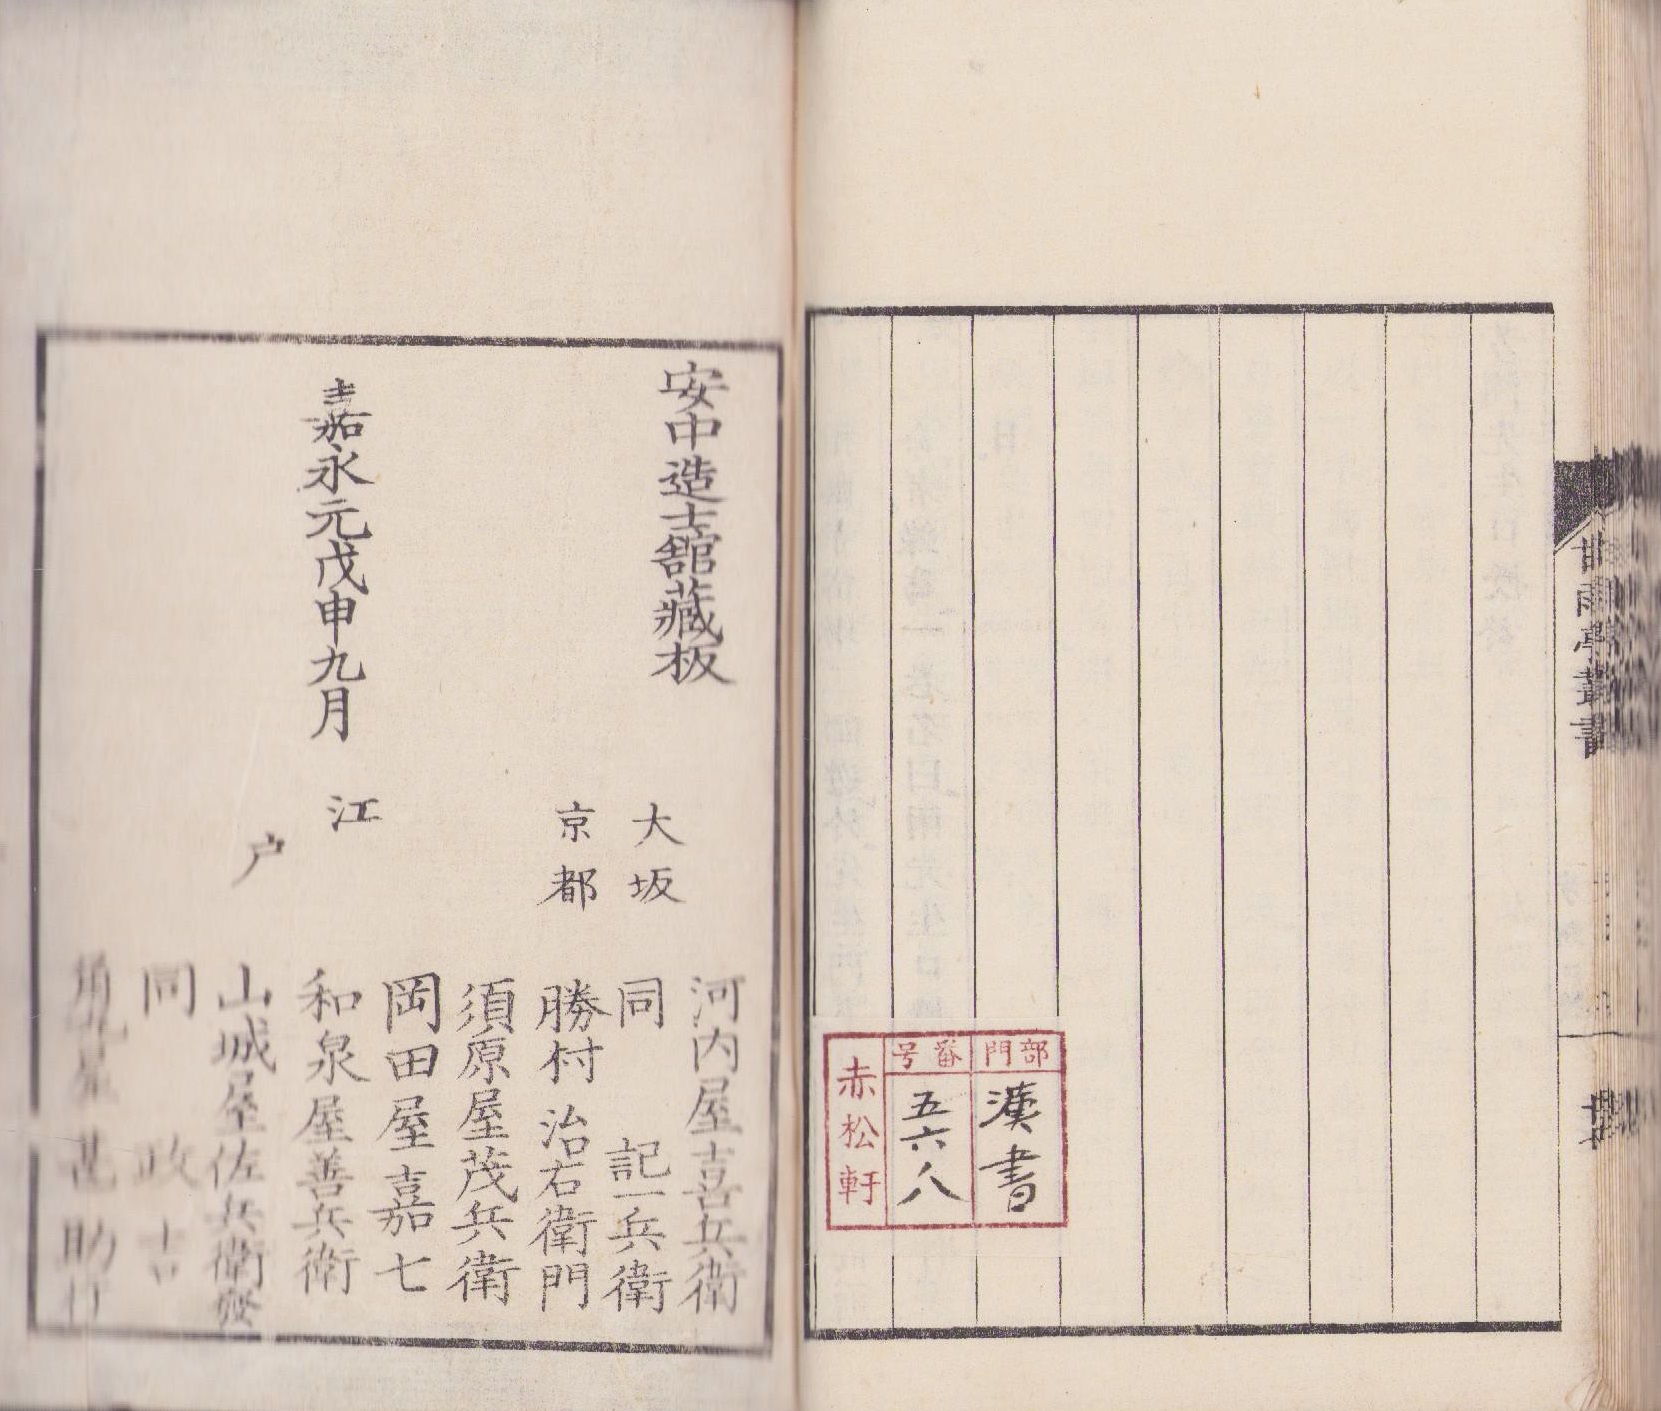 甘雨亭叢書
部門
漢書
番号
五六八
赤松軒
安中造士舘藏板
嘉永元戊申九月
大坂
河内屋喜兵衛
同 記一兵衛
京都
勝村治右衛門
江戸
須原屋茂兵衛
岡田屋嘉七
和泉屋善兵衛
山城屋佐兵衛發
同 政吉
甚助行